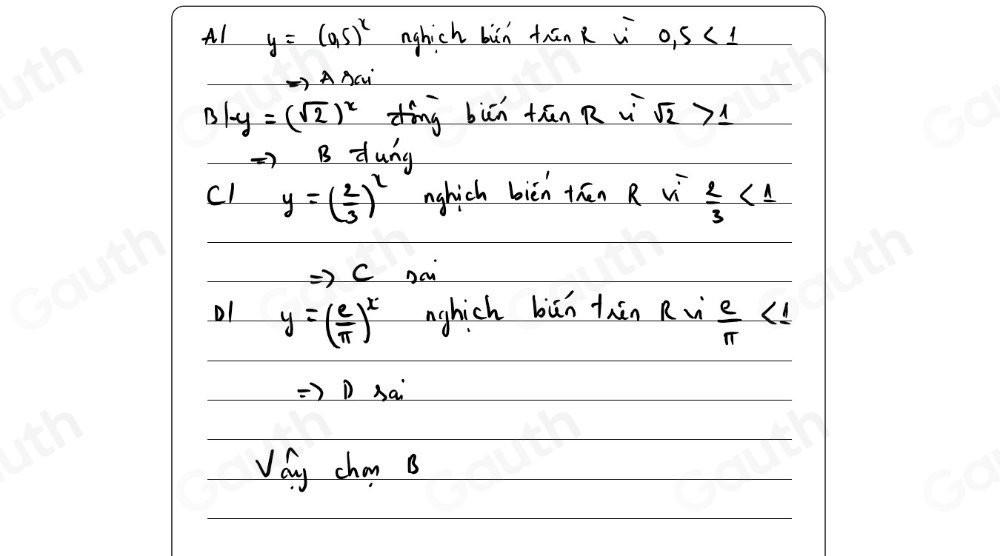 A/ y = (0,5)^x nghịch biến trên R vì 0,5 < 1
=> A sai
B/ y = (√2)^x đồng biến trên R vì √2 > 1
=> B đúng
C/ y = (2/3)^x nghịch biến trên R vì 2/3 < 1
=> C sai
D/ y = (e/π)^x nghịch biến trên R vì e/π < 1
=> D sai
Vậy chọn B
Gauth